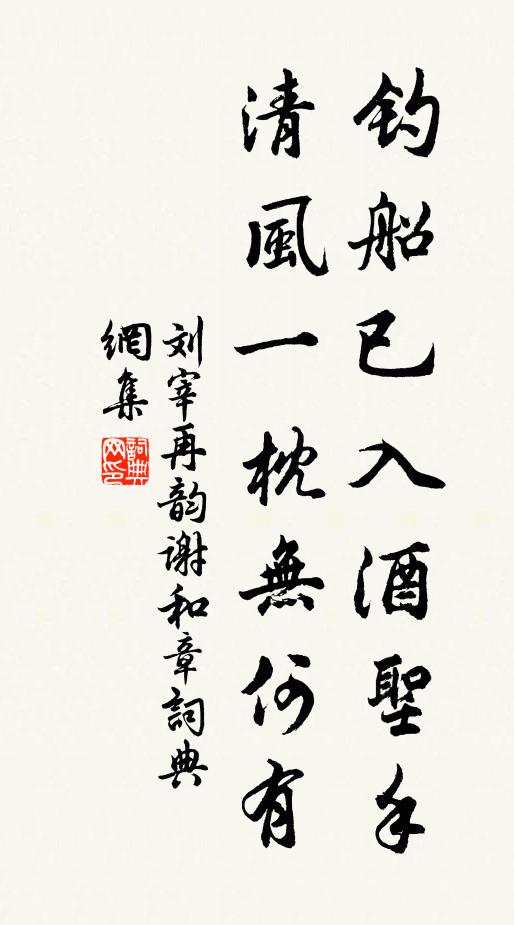 钓船已入酒聖手
清風一枕無何有
刘宰再韵谢和章詞典
網集
詞典網印